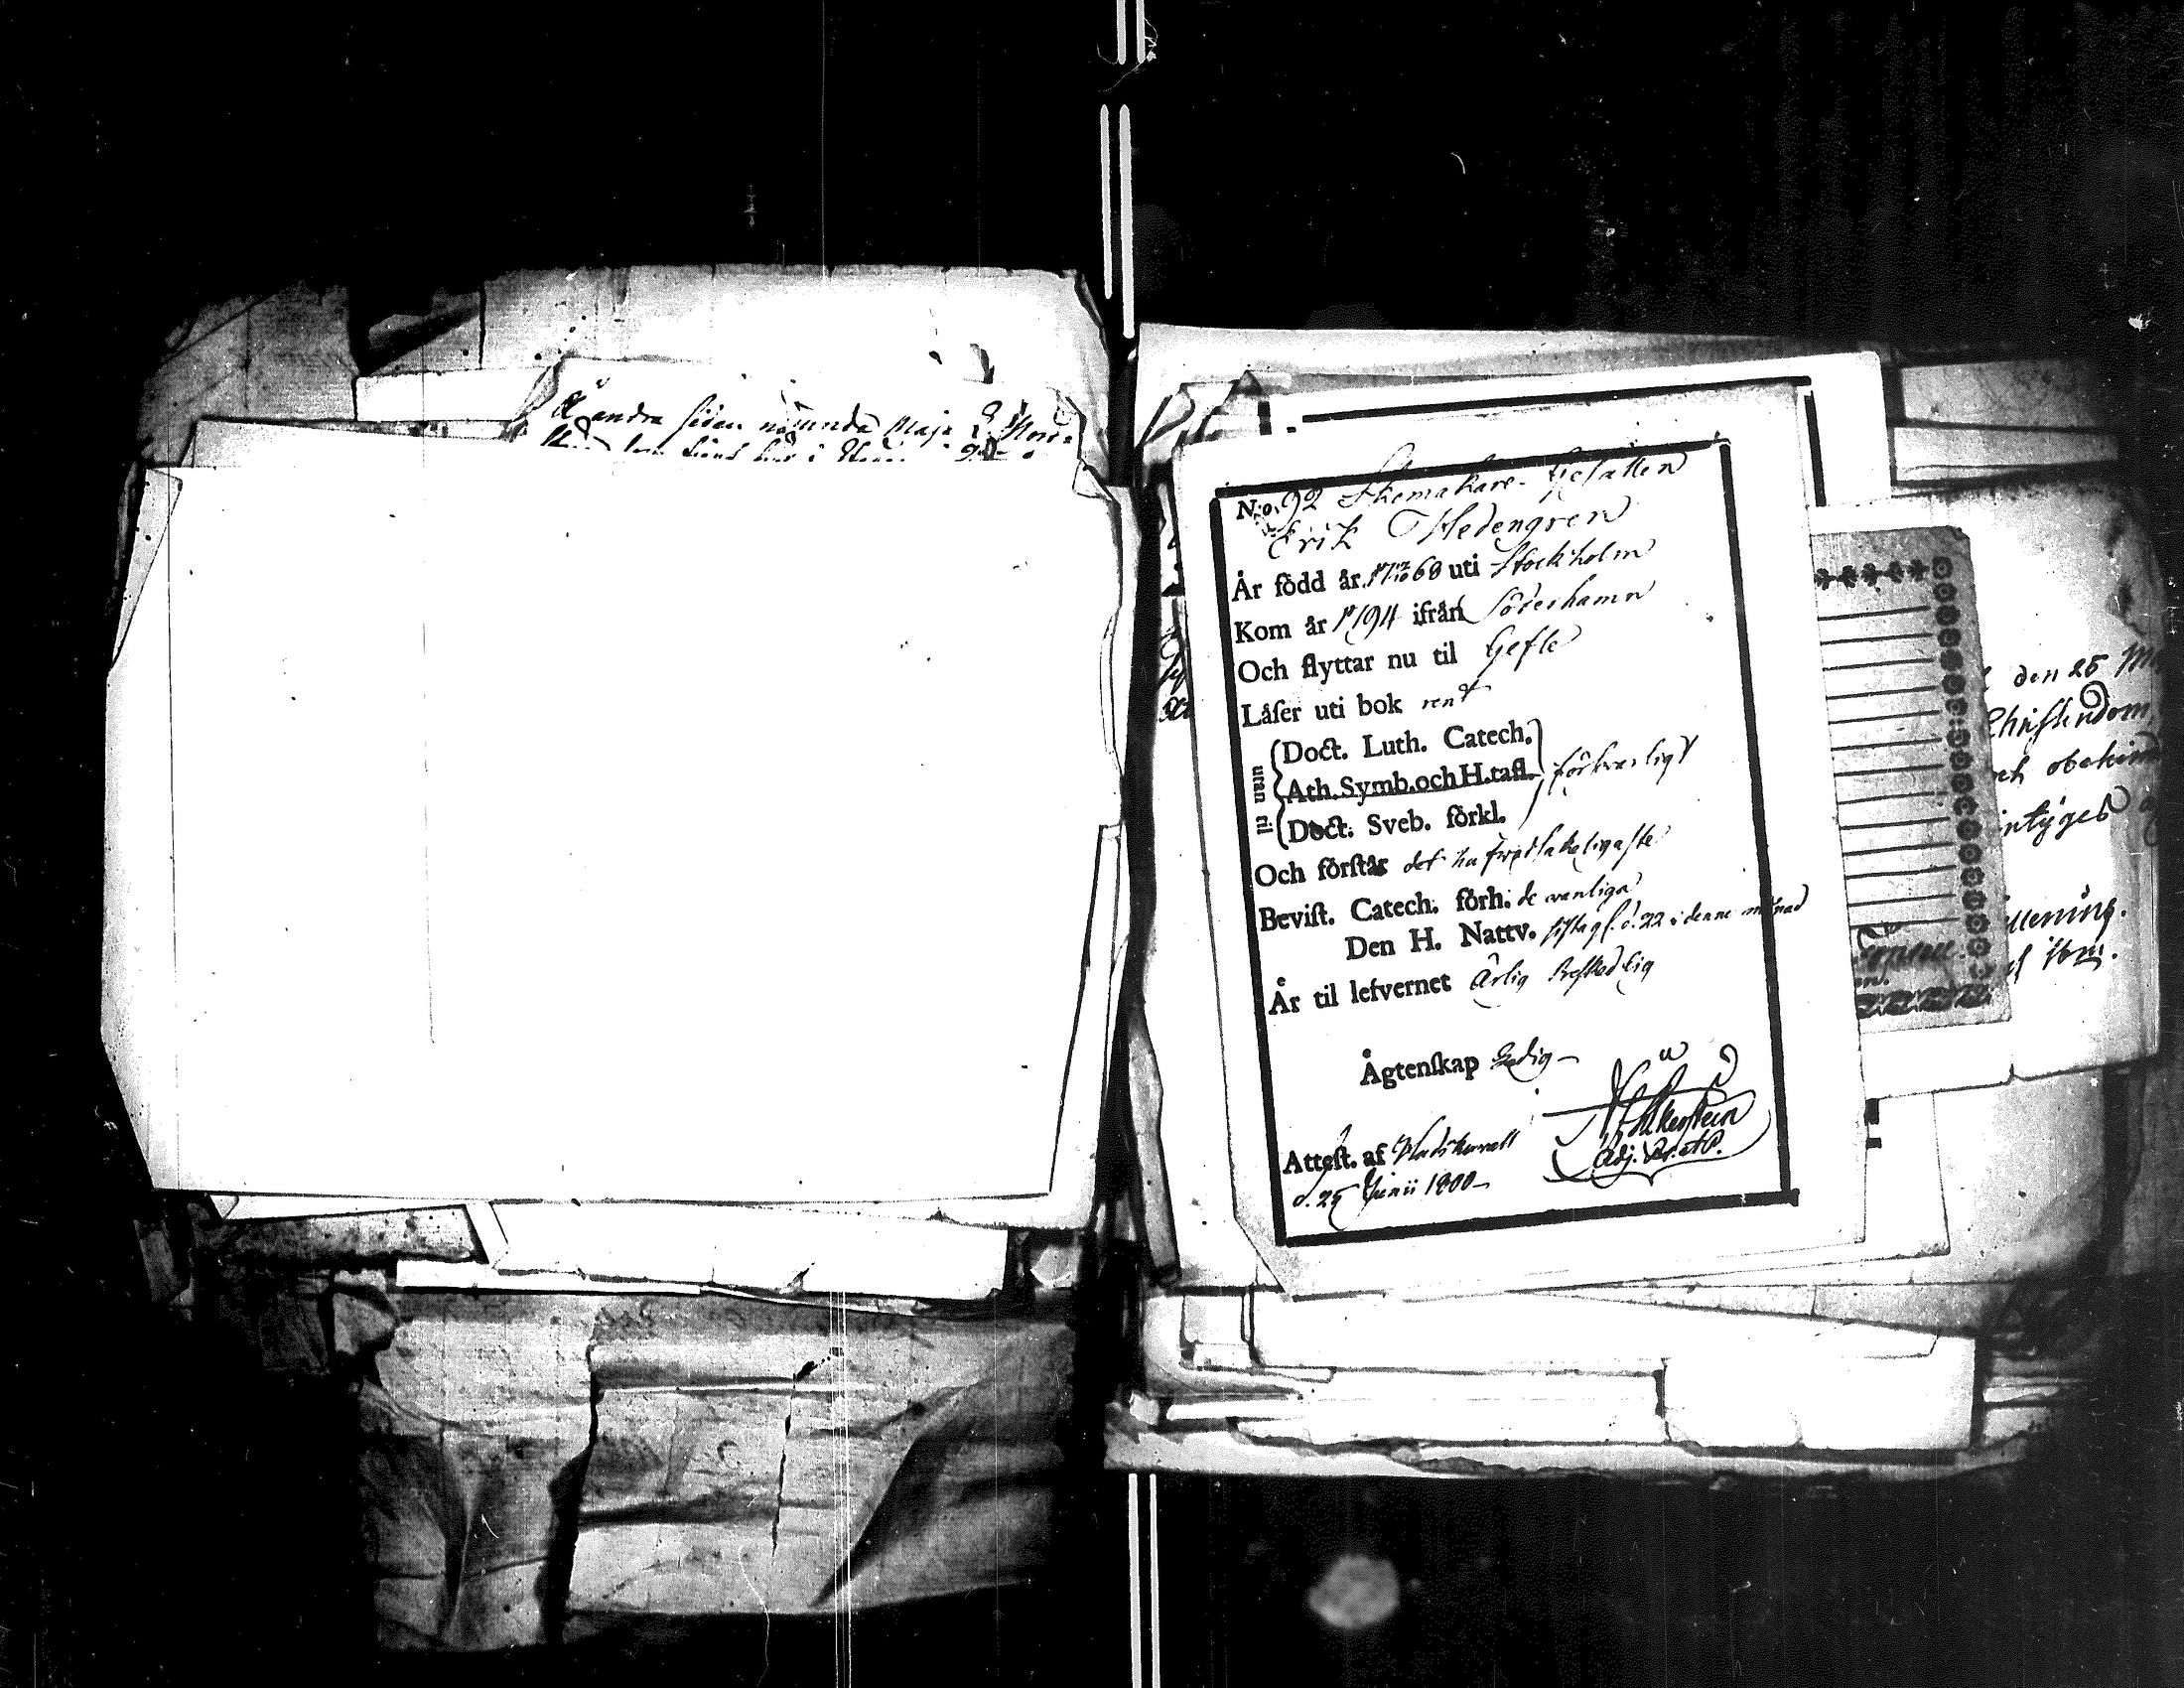 Å andra sidan nämnda Maja
No. 92 Skomakare-Gesällen
Erik Hedengren
År född år 17 12/10 68 uti Stockholm
Kom år 1794 ifrån Söderhamn
Och flyttar nu til Gefle
Låser uti bok rent
utan til
(Doct. Luth. Catech.)
Ath. Symb. och H. tafl.
(Doct. Sveb. förkl.
försvarligt
Och förstår det hufvudsakeligaste
Bevist. Catech. förh. de vanliga
Den H. Nattv. sista g. d. 22 i denne månad
År til lefvernet ärlig beskedlig
Ägtenskap Ledig
Attest. af
d. 25 Junii 1800
Adj. V. et P.
den 25
Christendom,
och
intyges